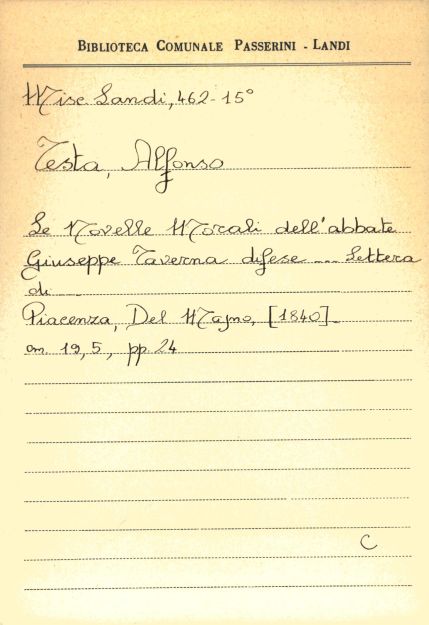 BIBLIOTECA COMUNALE PASSERINI - LANDI
Misc. Landi, 462-15°
Testa, Alfonso
Le Novelle Morali dell'abbate
Giuseppe Taverna difese ... Lettera
di ...
Piacenza, Del Majno, [1840].
cm. 19,5, pp. 24
C